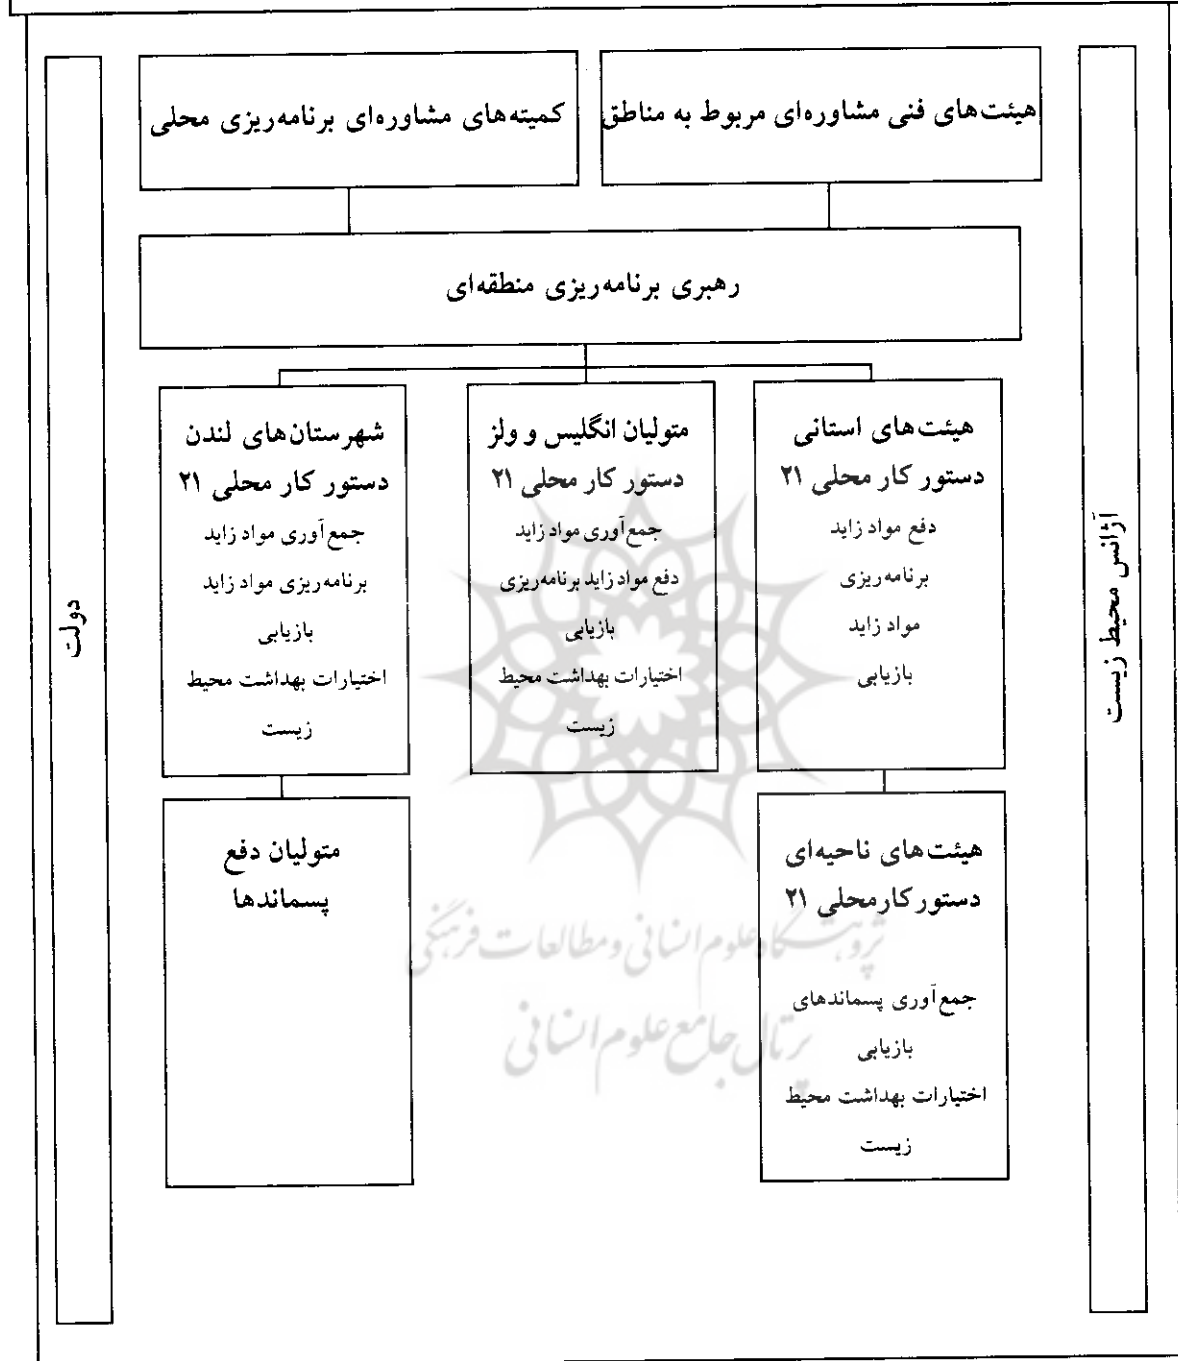 هیئت‌های فنی مشاوره‌ای مربوط به مناطق
کمیته‌های مشاوره‌ای برنامه‌ریزی محلی
رهبری برنامه‌ریزی منطقه‌ای
هیئت‌های استانی
دستور کار محلی ۲۱
دفع مواد زاید
برنامه‌ریزی
مواد زاید
بازیابی
متولیان انگلیس و ولز
دستور کار محلی ۲۱
جمع‌آوری مواد زاید
دفع مواد زاید برنامه‌ریزی
بازیابی
اختیارات بهداشت محیط
زیست
شهرستان‌های لندن
دستور کار محلی ۲۱
جمع‌آوری مواد زاید
برنامه‌ریزی مواد زاید
بازیابی
اختیارات بهداشت محیط
زیست
هیئت‌های ناحیه‌ای
دستور کارمحلی ۲۱
جمع‌آوری پسماندهای
بازیابی
اختیارات بهداشت محیط
زیست
متولیان دفع
پسماندها
آژانس محیط زیست
دولت
پژوهشگاه علوم انسانی و مطالعات فرهنگی
پرتال جامع علوم انسانی